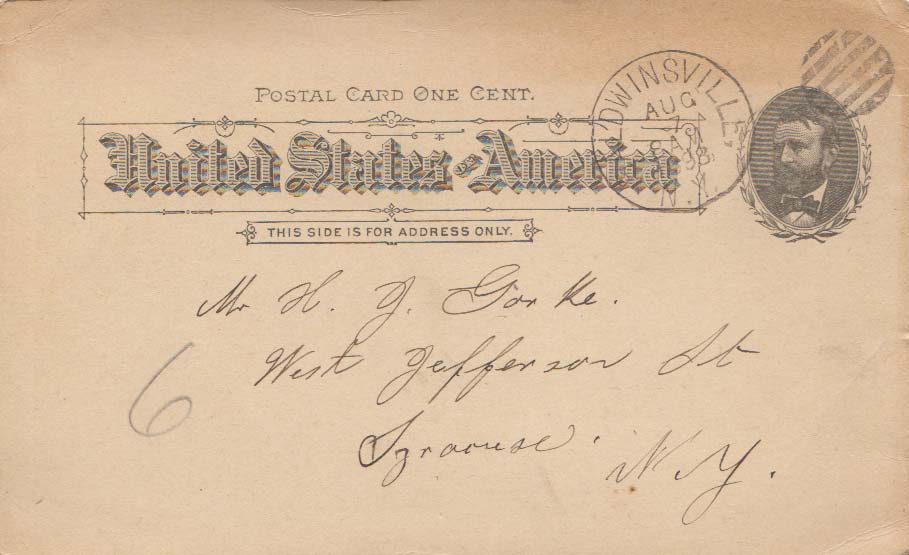 POSTAL CARD ONE CENT.
United States of America
THIS SIDE IS FOR ADDRESS ONLY.
DWINSVILLE,
AUG
7
N.Y.
Mr H. J. Gorke.
West Jefferson St
Syracuse. N.Y.
6